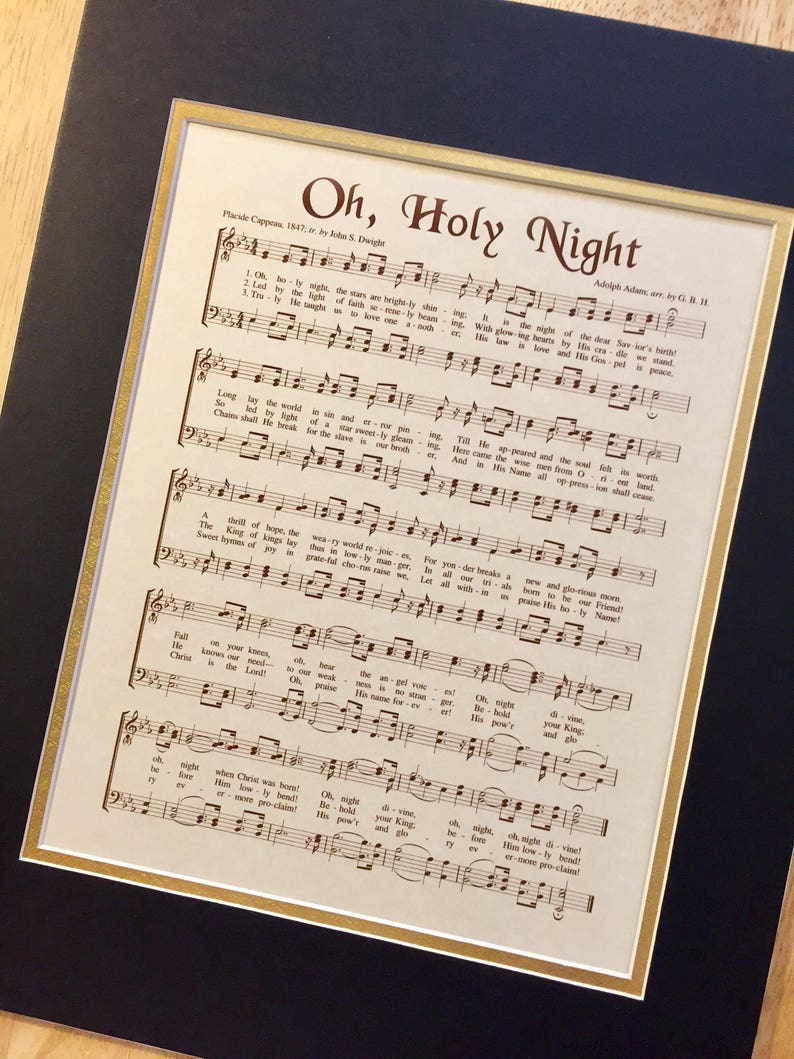 Oh, Holy Night
Placide Cappeau, 1847; tr. by John S. Dwight
Adolph Adam; arr. by G. B. H.
1. Oh, ho - ly night, the stars are bright-ly shin - ing; It is the night of the dear Sav-ior's birth!
2. Led by the light of faith se - rene - ly beam - ing, With glow-ing hearts by His cra - dle we stand.
3. Tru - ly He taught us to love one a - noth - er; His law is love and His Gos - pel is peace.
Long lay the world in sin and er - ror pin - ing, Till He ap-peared and the soul felt its worth.
So led by light of a star sweet-ly gleam - ing, Here came the wise men from O - ri - ent land.
Chains shall He break for the slave is our broth - er, And in His Name all op-press - ion shall cease.
A thrill of hope, the wea-ry world re - joic - es, For yon - der breaks a new and glo-rious morn.
The King of kings lay thus in low-ly man-ger, In all our tri - als born to be our Friend!
Sweet hymns of joy in grate-ful cho-rus raise we, Let all with - in us praise His ho - ly Name!
Fall on your knees, oh, hear the an - gel voic - es! Oh, night di - vine,
He knows our need— to our weak - ness is no stran - ger. Be - hold your King;
Christ is the Lord! Oh, praise His name for - ev - er! His pow'r and glo -
oh, night when Christ was born! Oh, night di - vine, oh, night, oh, night di - vine!
be - fore Him low - ly bend! Be - hold your King; be - fore Him low - ly bend!
ry ev - er-more pro-claim! His pow'r and glo - ry ev - er-more pro-claim!